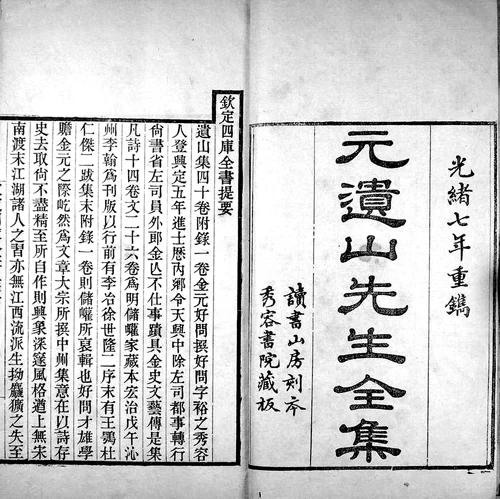 光緒七年重鐫
元遺山先生全集
讀書山房刻本
秀容書院藏板
欽定四庫全書提要
遺山集四十卷附錄一卷金元好問撰好問字裕之秀容
人登興定五年進士歷內鄉令天興中除左司都事轉行
尚書省左司員外郎金亡不仕事蹟具金史文藝傳是集
凡詩十四卷文二十六卷爲明儲巏家藏本宏治戊午沁
州李翰爲刊版以行前有李冶徐世隆二序末有王鶚杜
仁傑二跋集末附錄一卷則儲巏所裒輯也好問才雄學
贍金元之際屹然爲文章大宗所撰中州集意在以詩存
史去取尚不盡精至所自作則興象深邃風格遒上無宋
南渡末江湖諸人之習亦無江西流派生拗麤獷之失至